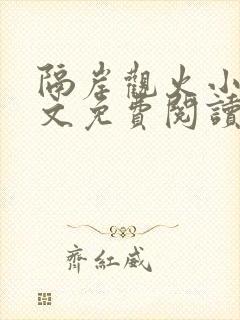 隔岸觀火小
文免費閱讀
齊紅威